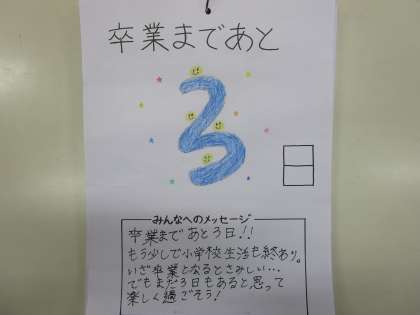 卒業まであと
3
日
みんなへのメッセージ
卒業まであと3日!!
もう少しで小学校生活も終わり。
いざ卒業となるとさみしい…
でもまだ3日もあると思って
楽しく過ごそう!